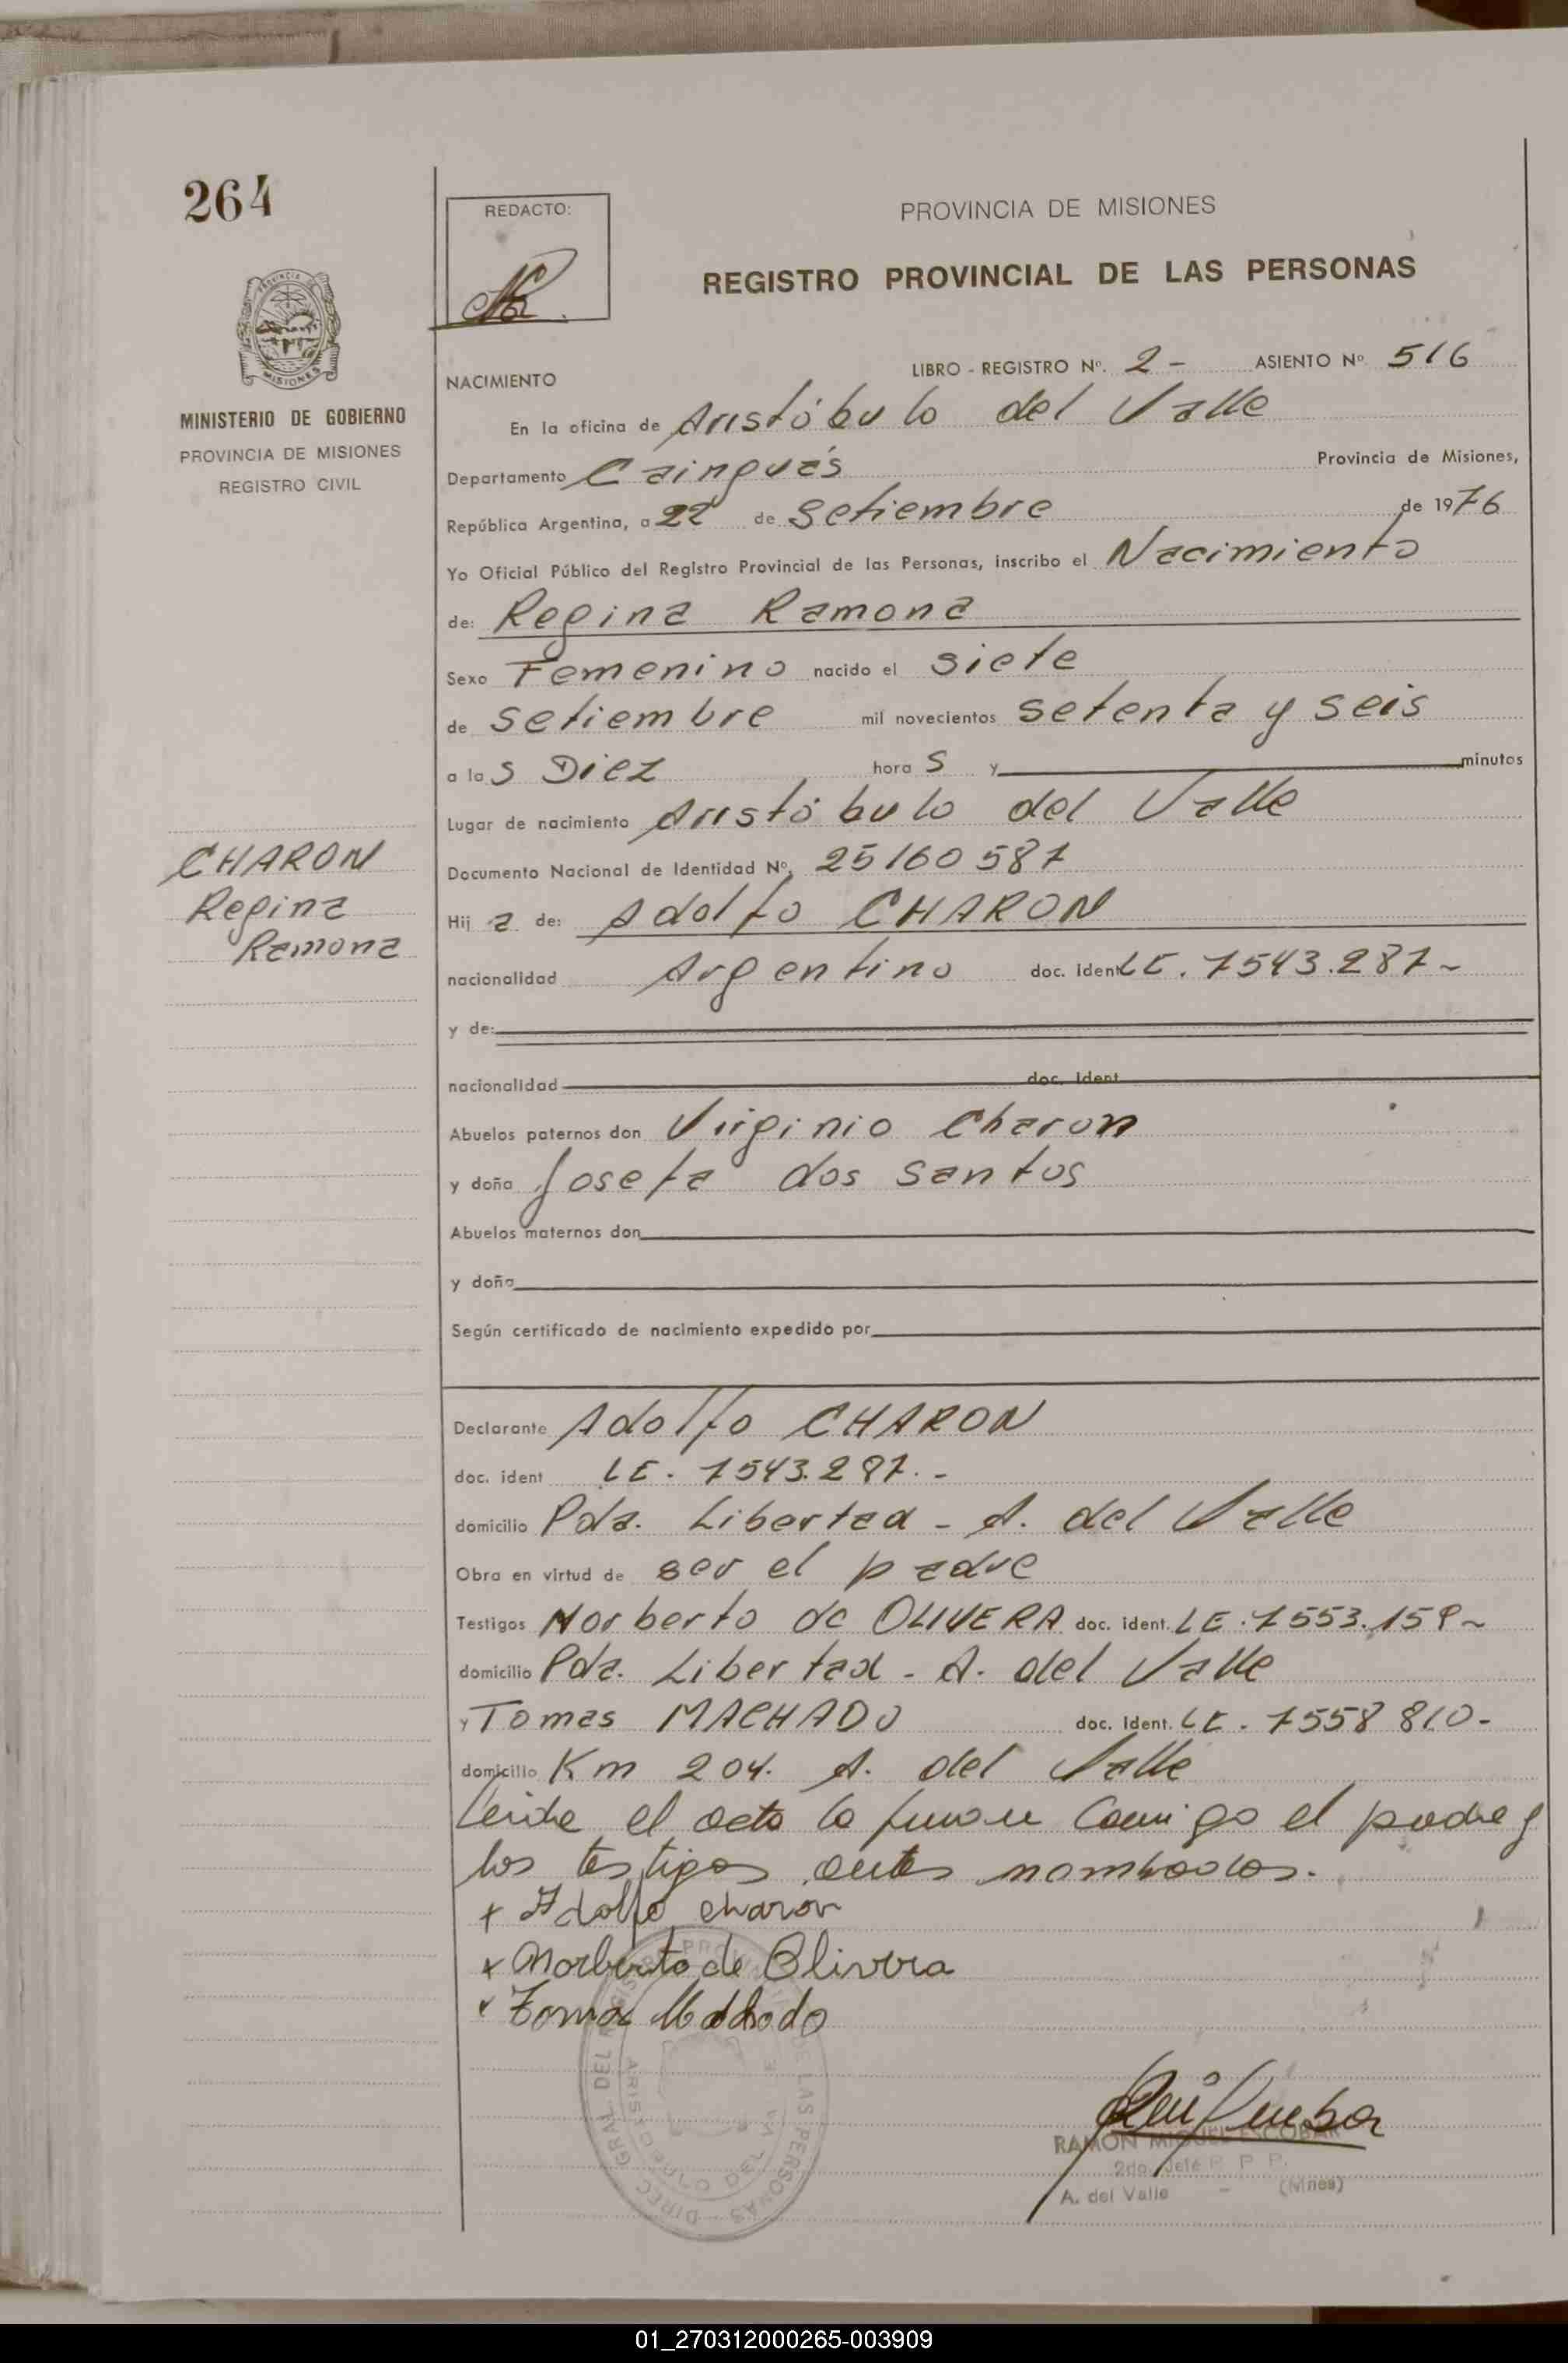 264
REDACTO:
PROVINCIA DE MISIONES
REGISTRO PROVINCIAL DE LAS PERSONAS
PROVINCIA
MISIONES
MINISTERIO DE GOBIERNO
PROVINCIA DE MISIONES
REGISTRO CIVIL
LIBRO - REGISTRO Nº. 2 - ASIENTO Nº 516
NACIMIENTO
En la oficina de Aristóbulo del Valle
Departamento Cainguás Provincia de Misiones,
República Argentina, a 22 de setiembre de 1976
Yo Oficial Público del Registro Provincial de las Personas, inscribo el Nacimiento
de: Regina Ramona
Sexo Femenino nacido el siete
de setiembre mil novecientos setenta y seis
a las Diez horas y minutos
Lugar de nacimiento Aristóbulo del Valle
Documento Nacional de Identidad Nº. 25160587
CHARON
Regina
Ramona
Hija de: Adolfo CHARON
nacionalidad Argentino doc. ident LE. 7543.287-
y de:
nacionalidad doc. ident
Abuelos paternos don Virginio Charon
y doña Josefa dos Santos
Abuelos maternos don
y doña
Según certificado de nacimiento expedido por
Declarante Adolfo CHARON
doc. ident LE. 7543.287.-
domicilio Pda. Libertad - A. del Valle
Obra en virtud de ser el padre
Testigos Norberto de OLIVERA doc. ident. LE. 7553.159-
domicilio Pda. Libertad - A. del Valle
y Tomas MACHADO doc. Ident. LE. 7558 810-
domicilio Km 204. A. del Valle
Leida el acta la firman conmigo el padre y
los testigos antes nombrados.
+ Adolfo charon
+ Norberto de Olivera
+ Tomas Machado
RAMON MIGUEL ESCOBAR
2do. Jefe R P P.
A. del Valle - (Mnes)
01_270312000265-003909